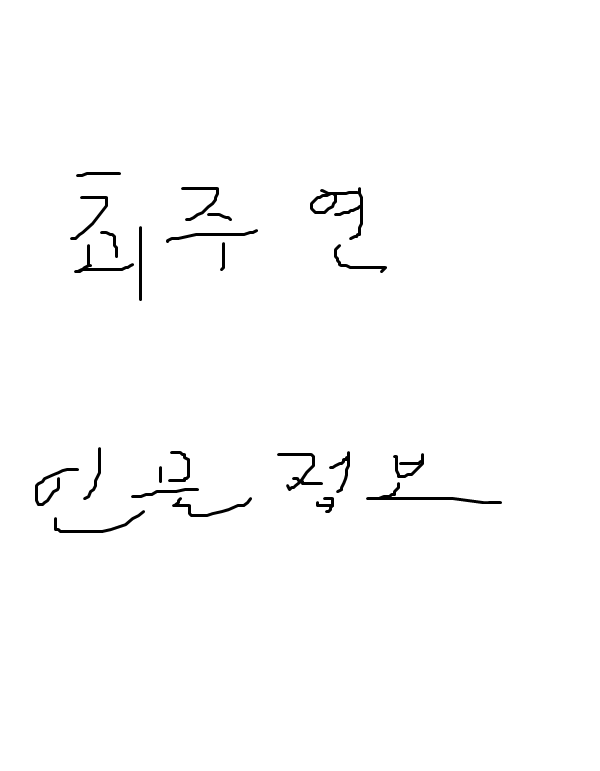 최주연
인문정보